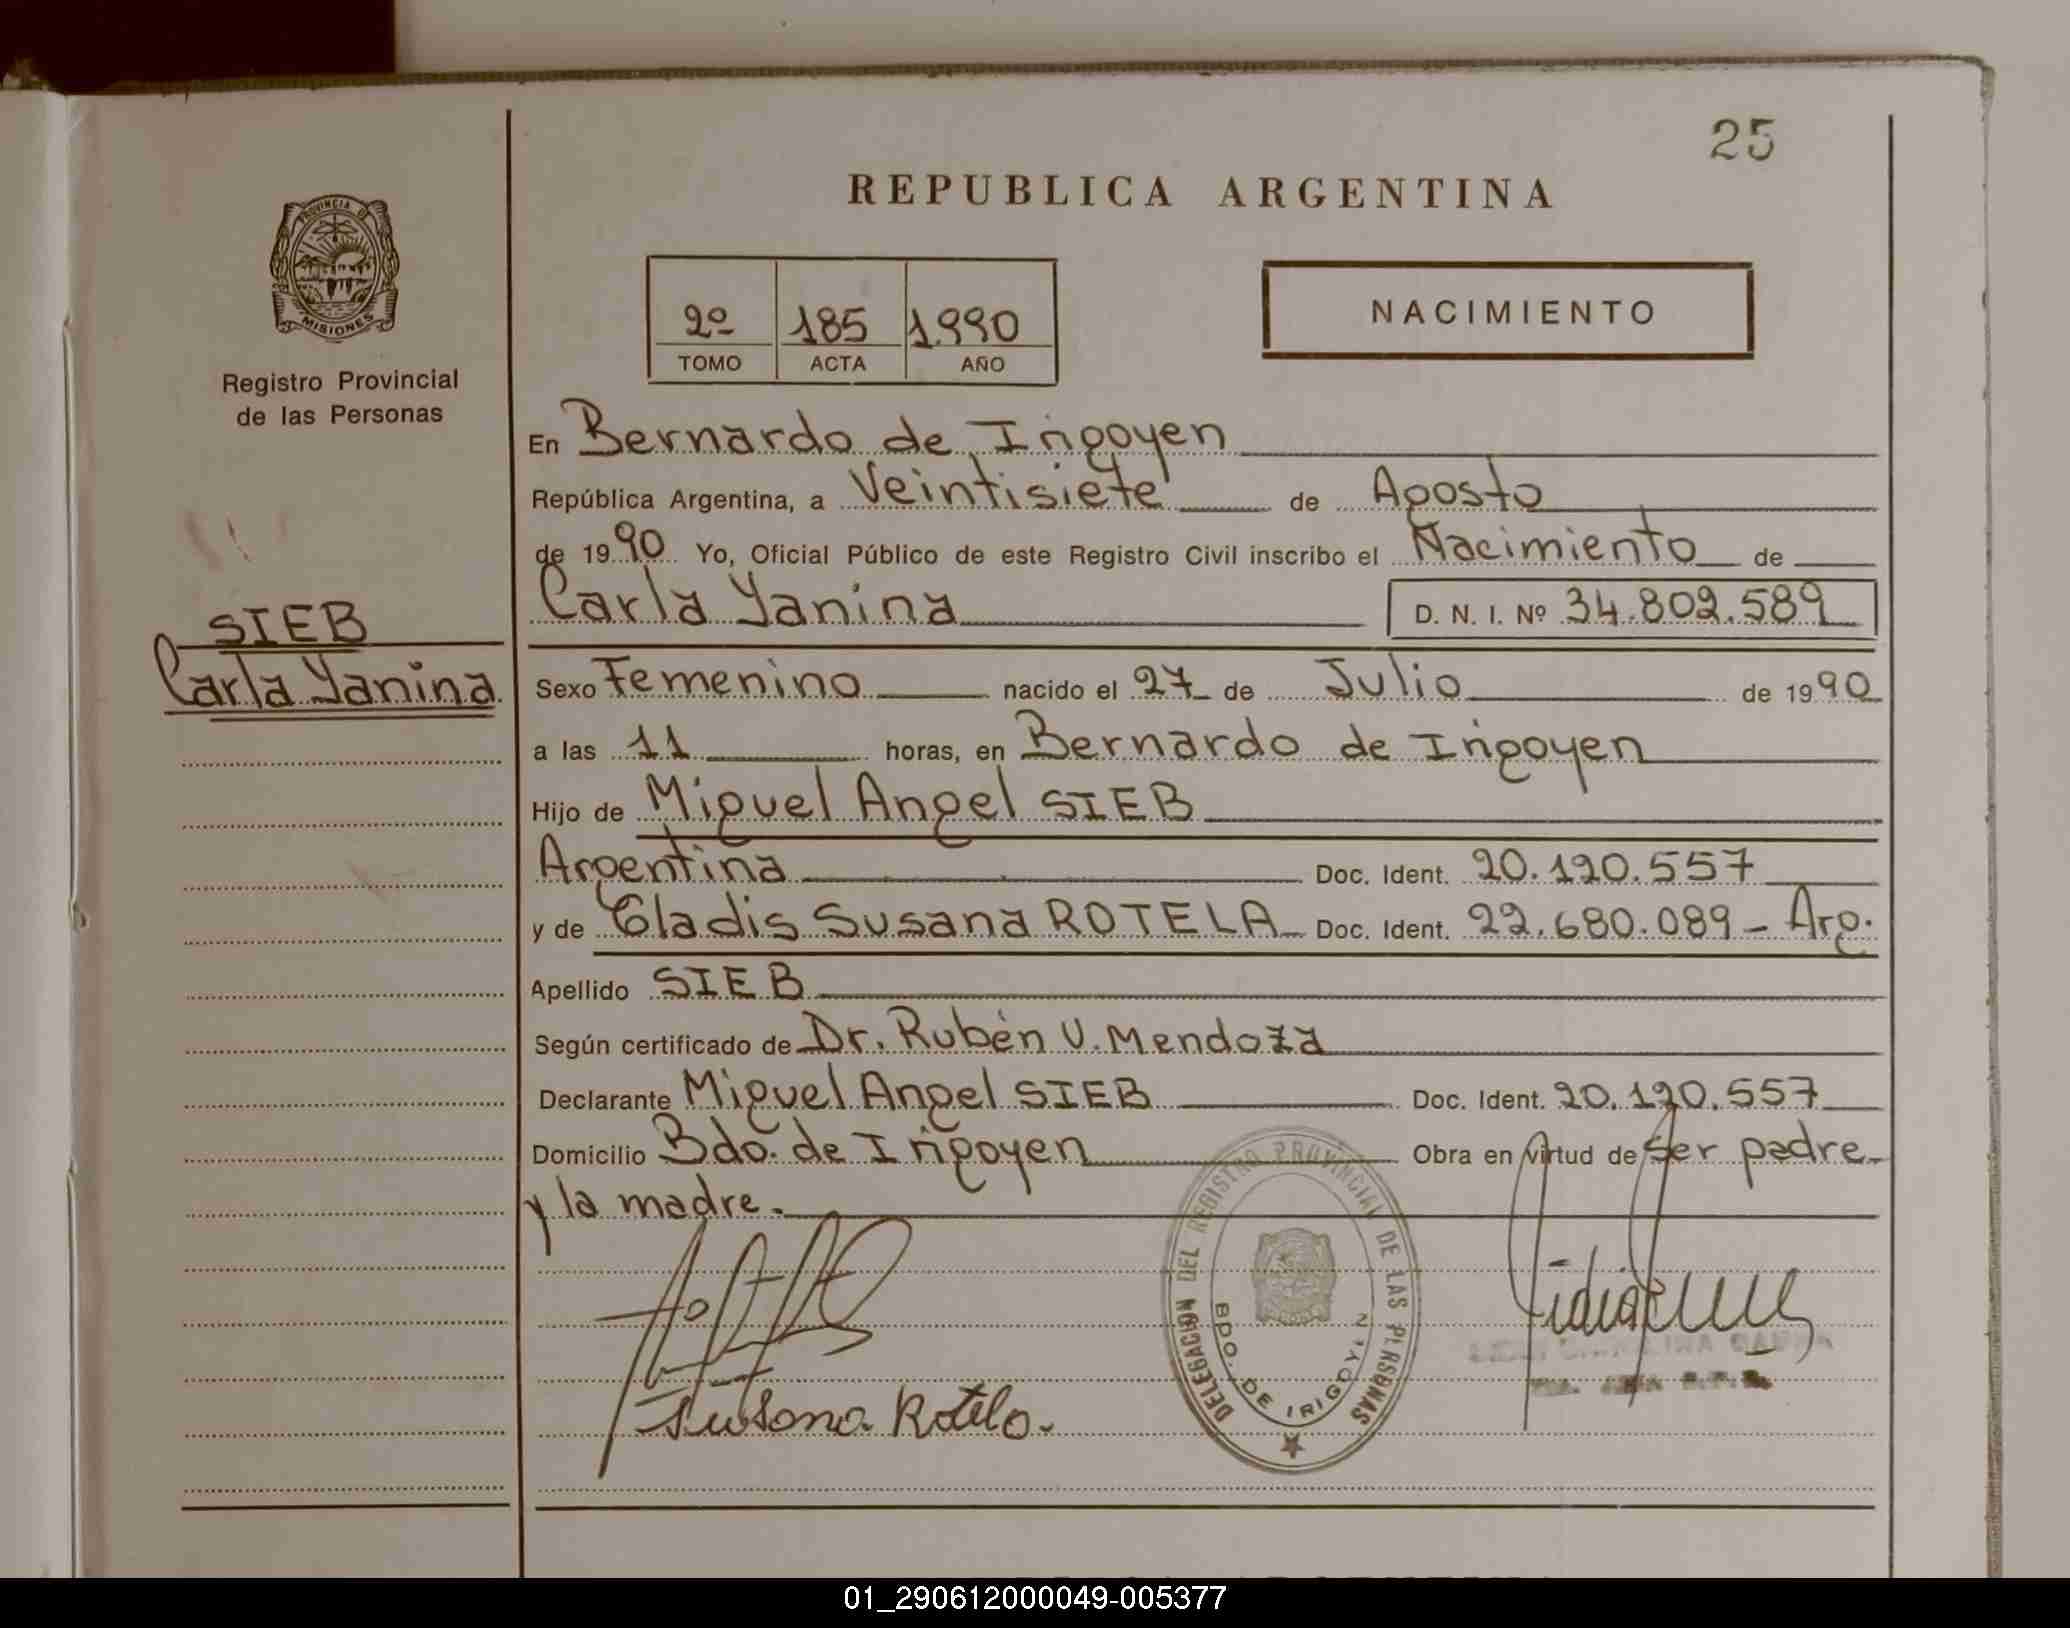 25
REPUBLICA ARGENTINA
PROVINCIA DE
MISIONES
Registro Provincial
de las Personas
2º 185 1.990
TOMO ACTA AÑO
NACIMIENTO
En Bernardo de Irigoyen
República Argentina, a Veintisiete de Agosto
de 1990 Yo, Oficial Público de este Registro Civil inscribo el Nacimiento de
Carla Yanina D. N. I. Nº 34.802.589
SIEB
Carla Yanina
Sexo Femenino nacido el 27 de Julio de 1990
a las 11 horas, en Bernardo de Irigoyen
Hijo de Miguel Angel SIEB
Argentina Doc. Ident. 20.120.557
y de Gladis Susana ROTELA Doc. Ident. 22.680.089 - Arg.
Apellido SIEB
Según certificado de Dr. Rubén V. Mendoza
Declarante Miguel Angel SIEB Doc. Ident. 20.120.557
Domicilio Bdo. de Irigoyen Obra en virtud de ser padre
y la madre.
DELEGACION DEL REGISTRO PROVINCIAL DE LAS PERSONAS
BDO. DE IRIGOYEN
Susana Rotela.
01_290612000049-005377